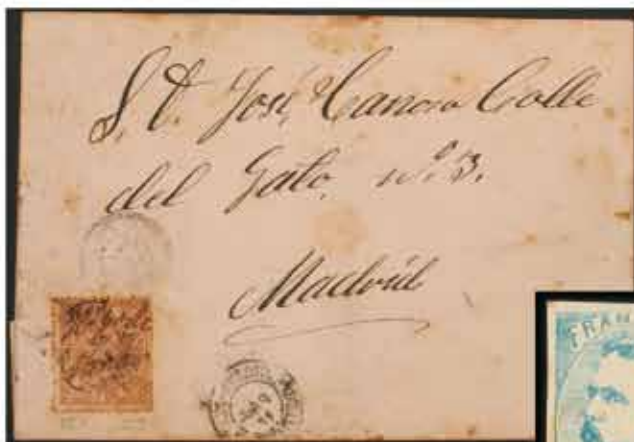 S. D. José Canora Calle
del Gato, nº 3.
Madrid
FRAN